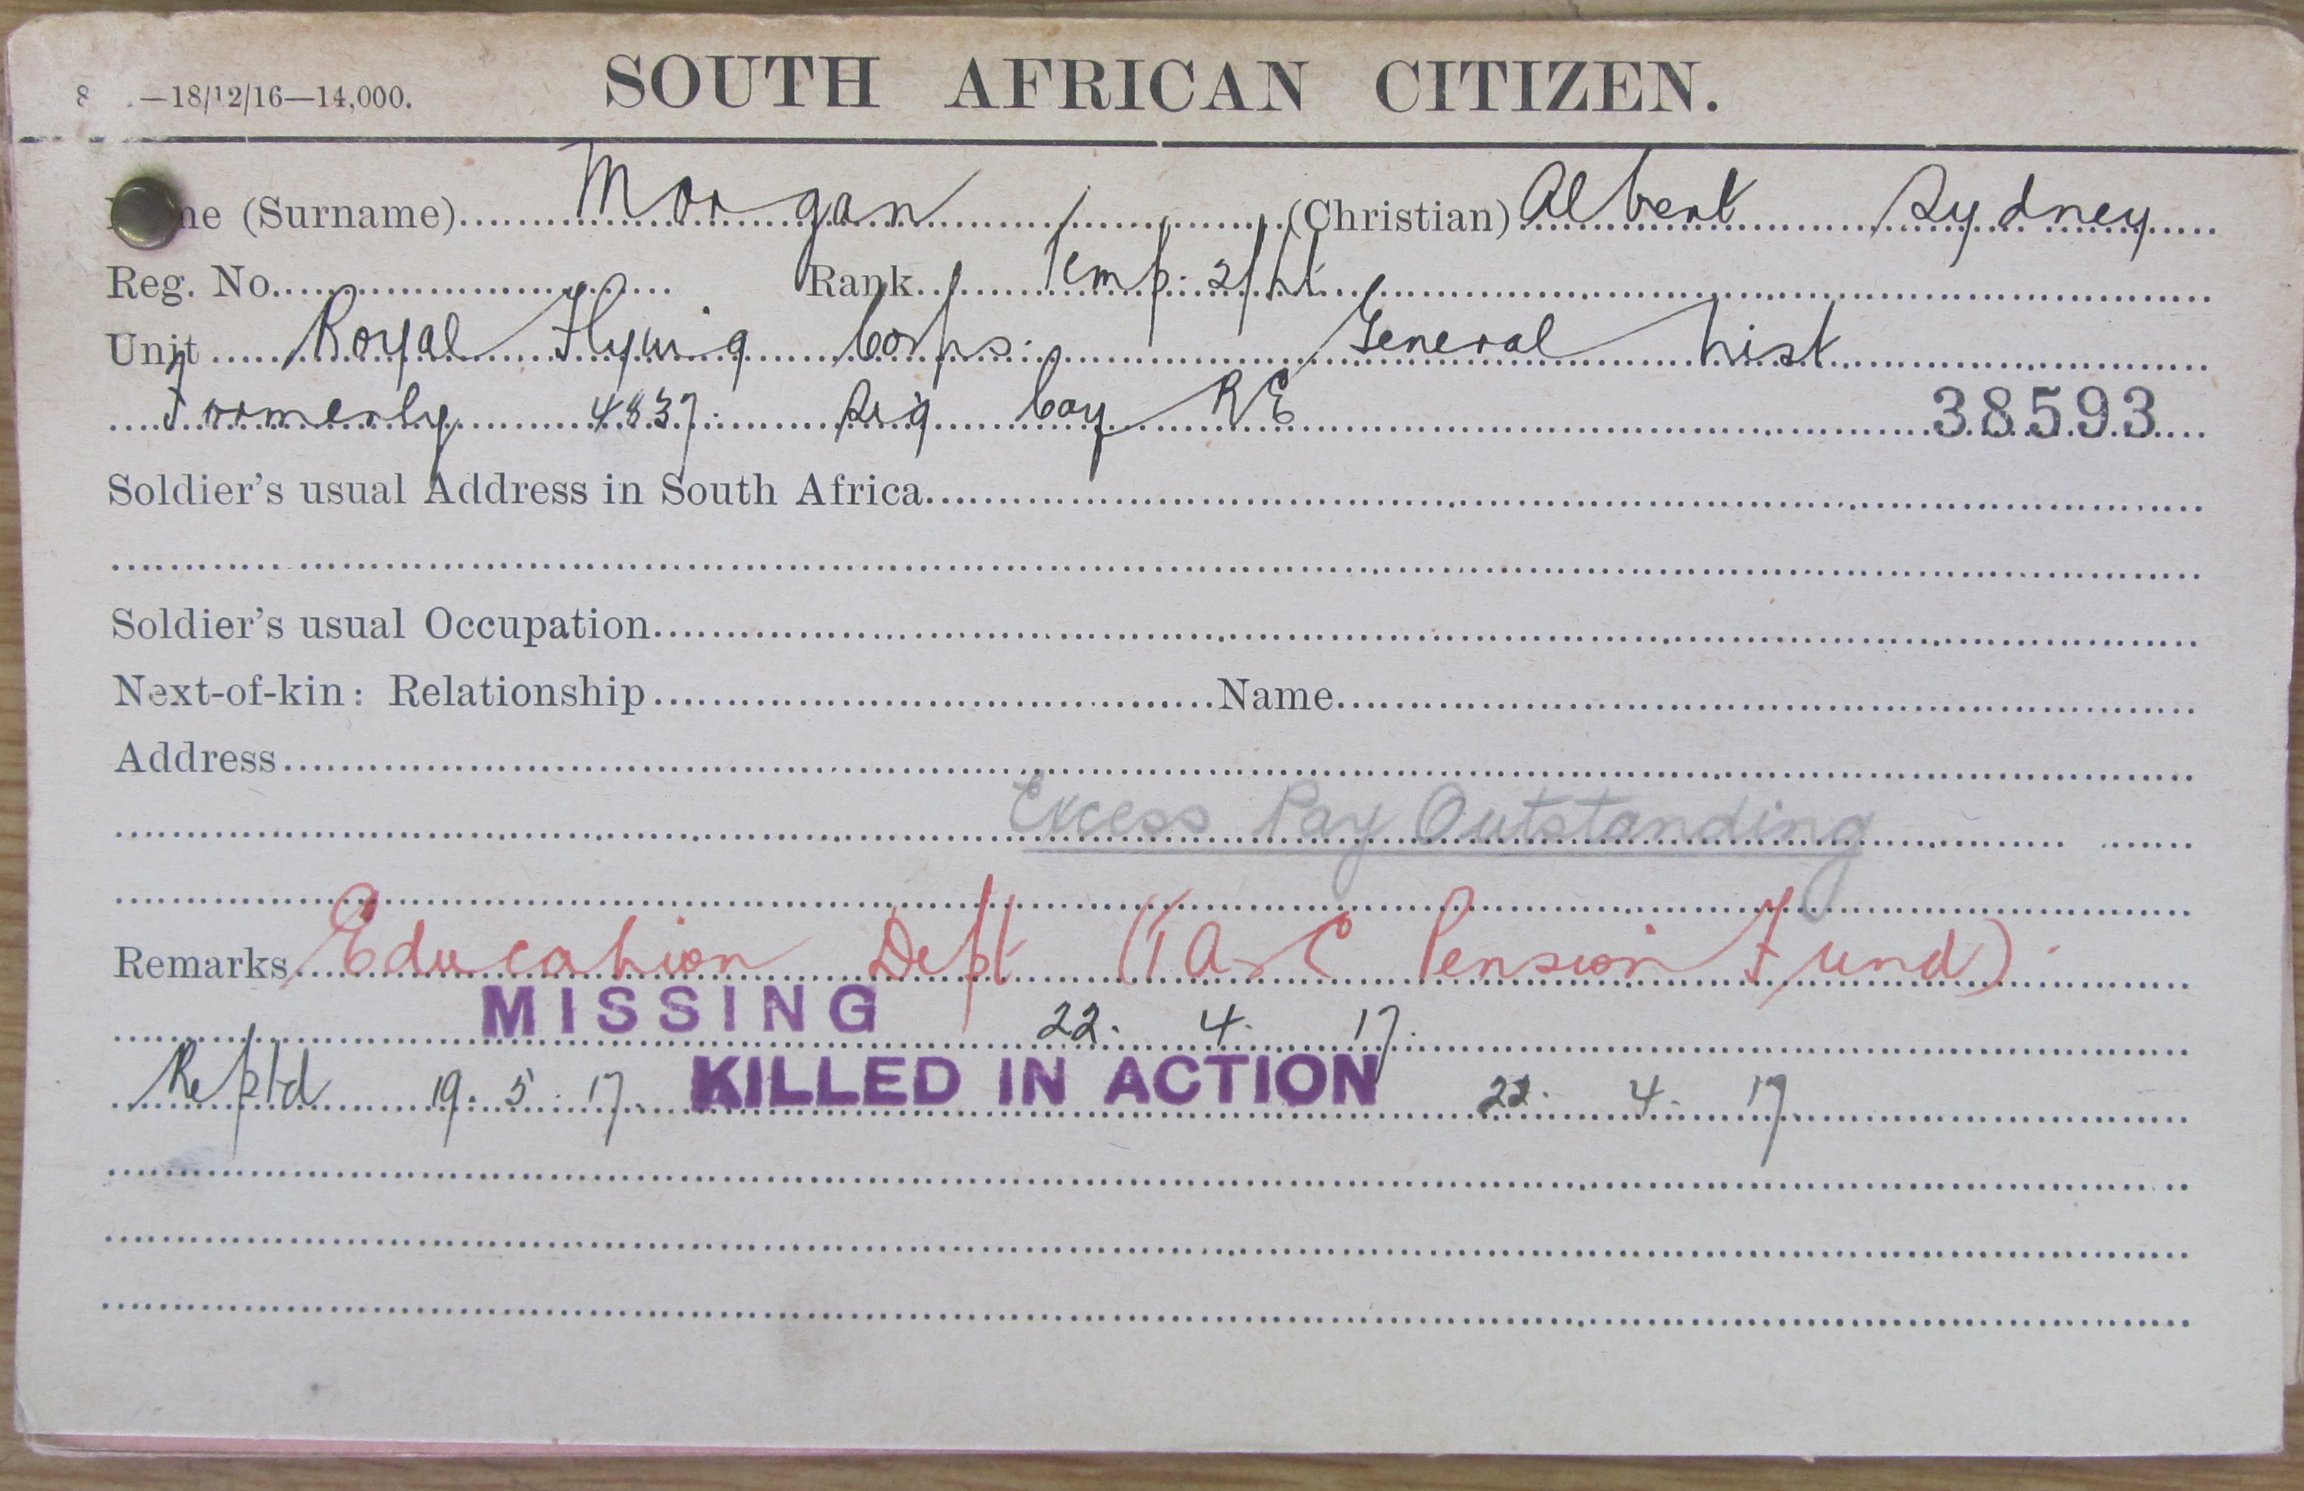 8 —18/12/16—14,000. SOUTH AFRICAN CITIZEN.
(Surname) Morgan (Christian) Albert Sydney
Reg. No. Rank Temp. 2/Lt.
Unit Royal Flying Corps. General List
Formerly 4837. Sig Coy RE 38593
Soldier's usual Address in South Africa
Soldier's usual Occupation
Next-of-kin: Relationship Name
Address
Excess Pay Outstanding
Remarks Education Dept (Pension Fund).
MISSING 22. 4. 17.
Reptd 19. 5. 17. KILLED IN ACTION 22. 4. 17.